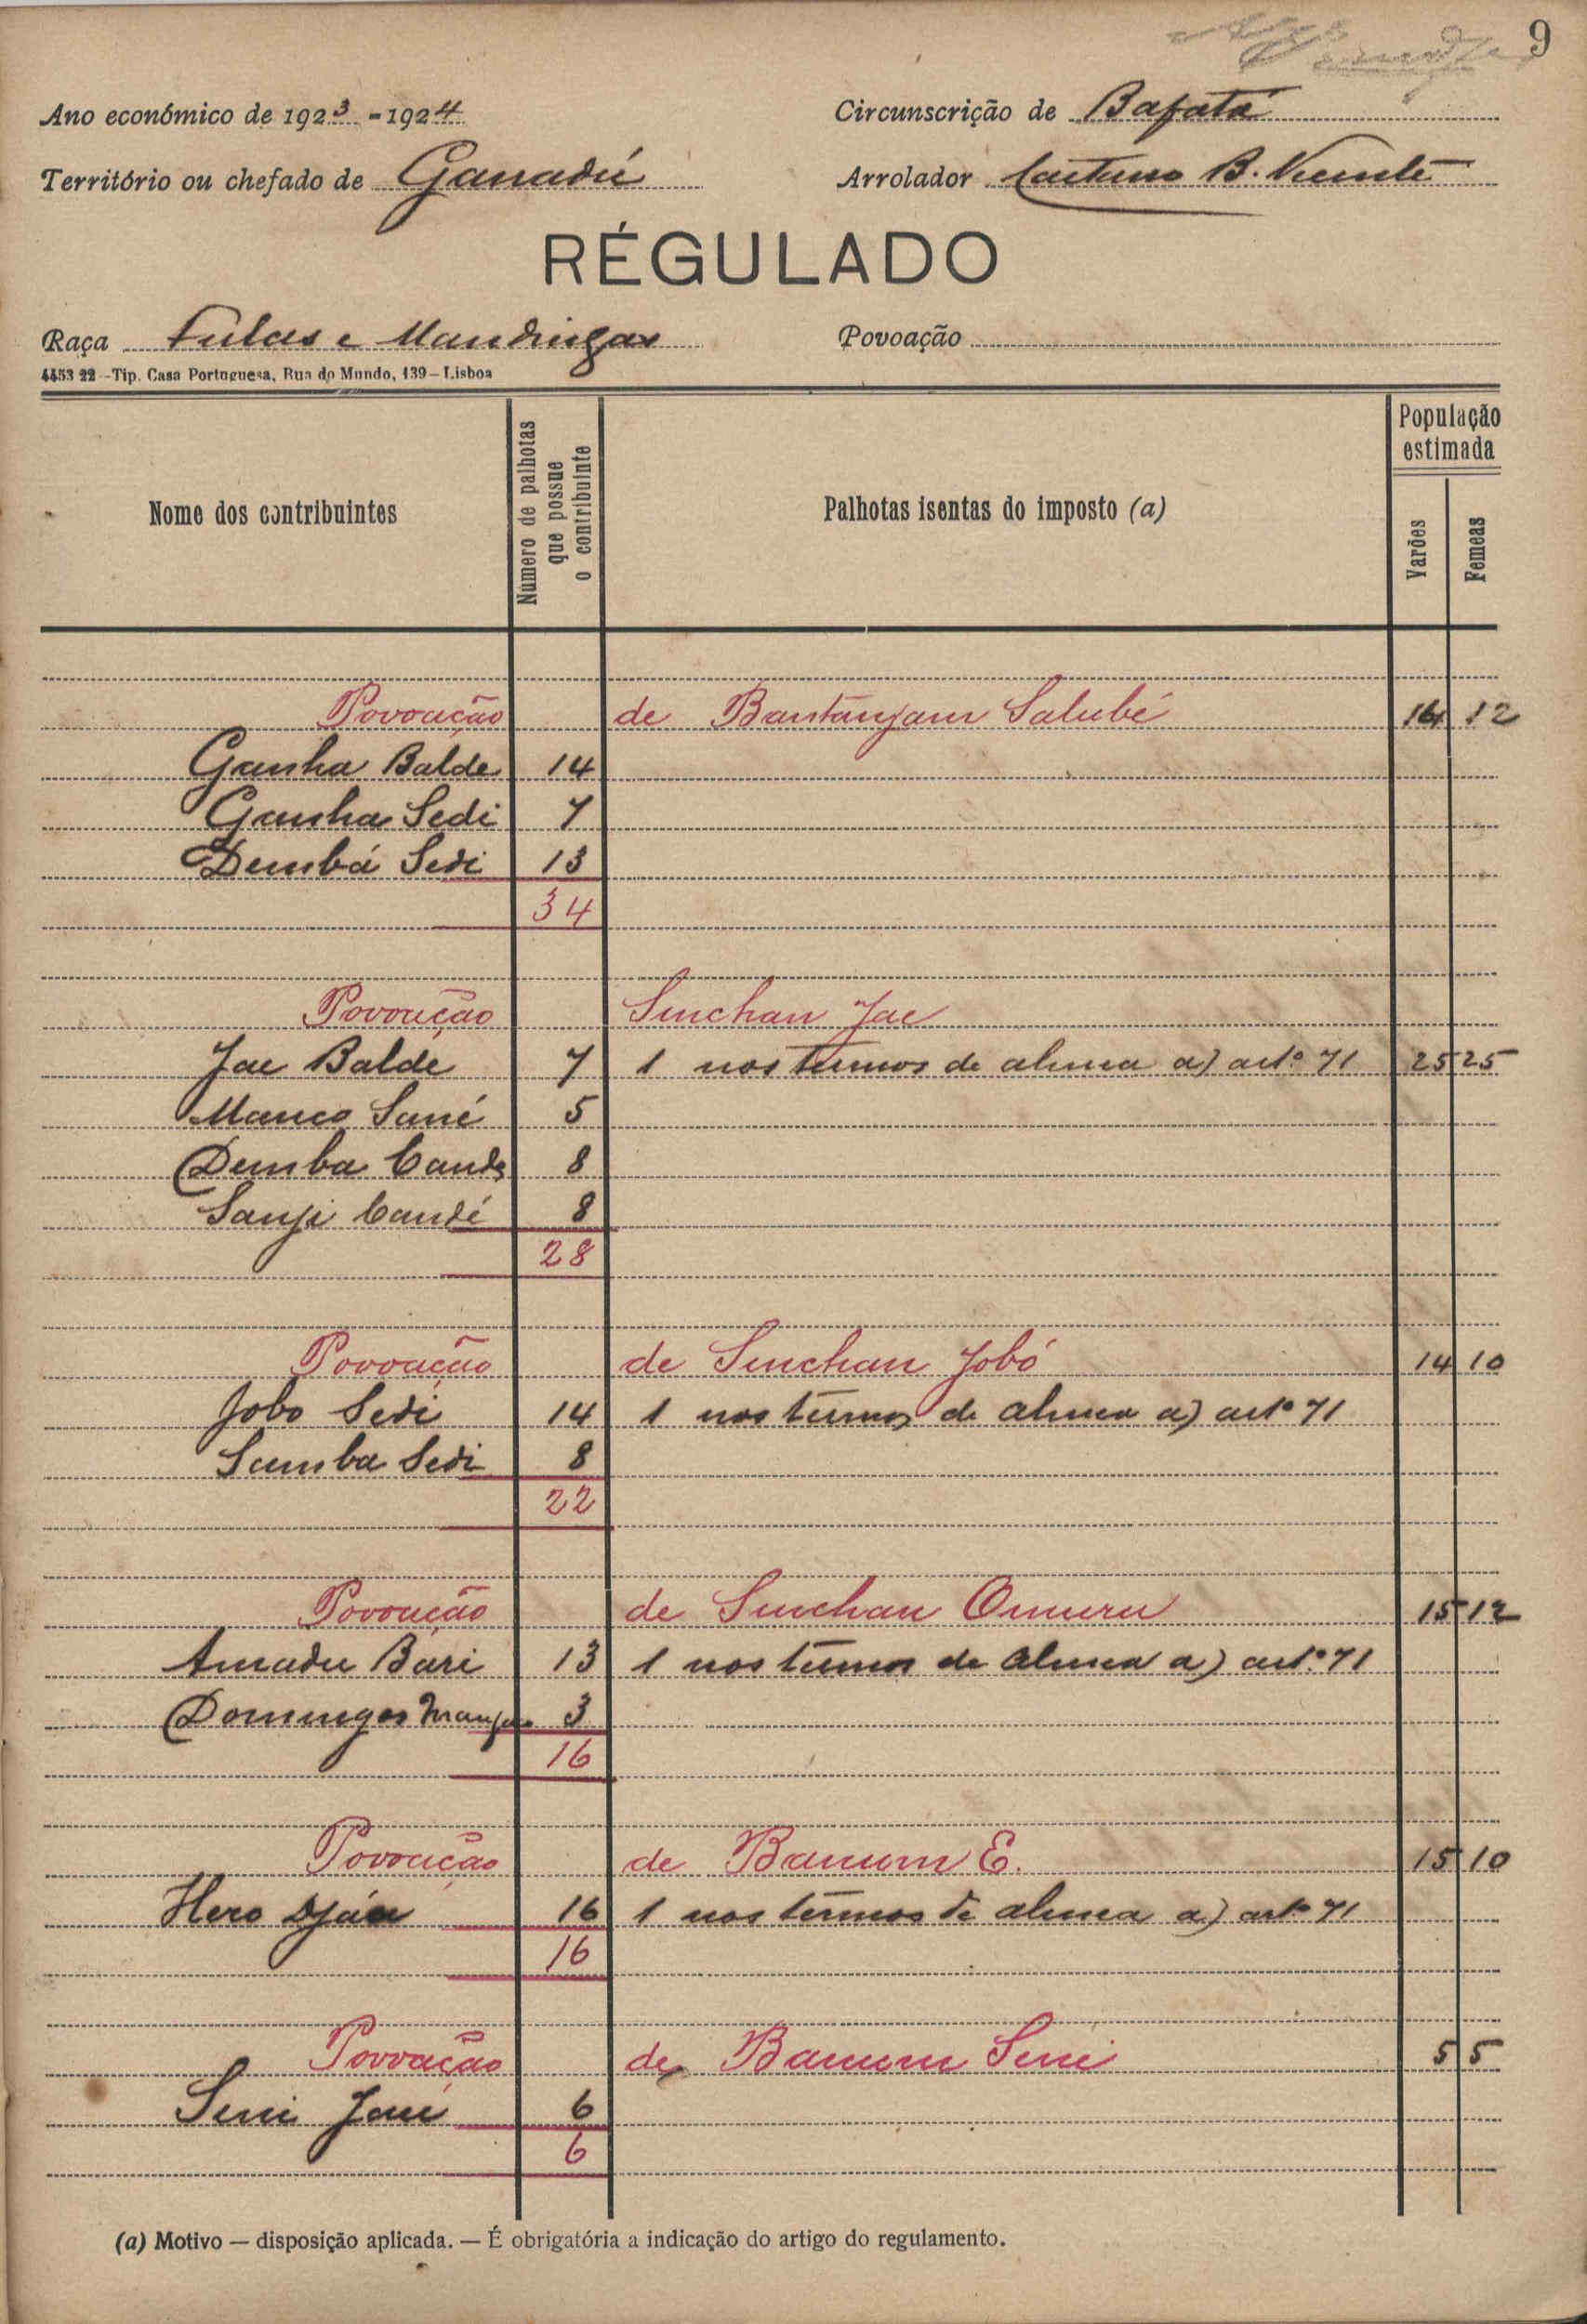 9
Ano económico de 1923-1924 Circunscrição de Bafatá
Território ou chefado de Ganadú Arrolador Caetano B. Vicente
RÉGULADO
Raça Fulas e Mandingas Povoação
4453 22 - Tip. Casa Portuguesa, Rua do Mundo, 139 - Lisboa
Nome dos contribuintes Número de palhotas que possue o contribuinte Palhotas isentas do imposto (a) População estimada Varões Femeas
Povoação de Bantanjam Salubé 14 12
Ganha Balde 14
Ganha Sedi 7
Dembá Sedi 13
34
Povoação Sinchan Jae
Jae Baldé 7 1 nos termos de alinea a) artº 71 25 25
Manco Sané 5
Demba Cande 8
Sanji Candé 8
28
Povoação de Sinchan Jobó 14 10
Jobo Sedi 14 1 nos termos de alinea a) artº 71
Samba Sedi 8
22
Povoação de Sinchan Omuru 15 12
Amadu Bari 13 1 nos termos de alinea a) artº 71
Domingos 3
16
Povoação de Banum E. 15 10
Hero Djáu 16 1 nos termos de alinea a) artº 71
16
Povoação de Banum Seni 5 5
Seni Jau 6
6
(a) Motivo — disposição aplicada. — É obrigatória a indicação do artigo do regulamento.